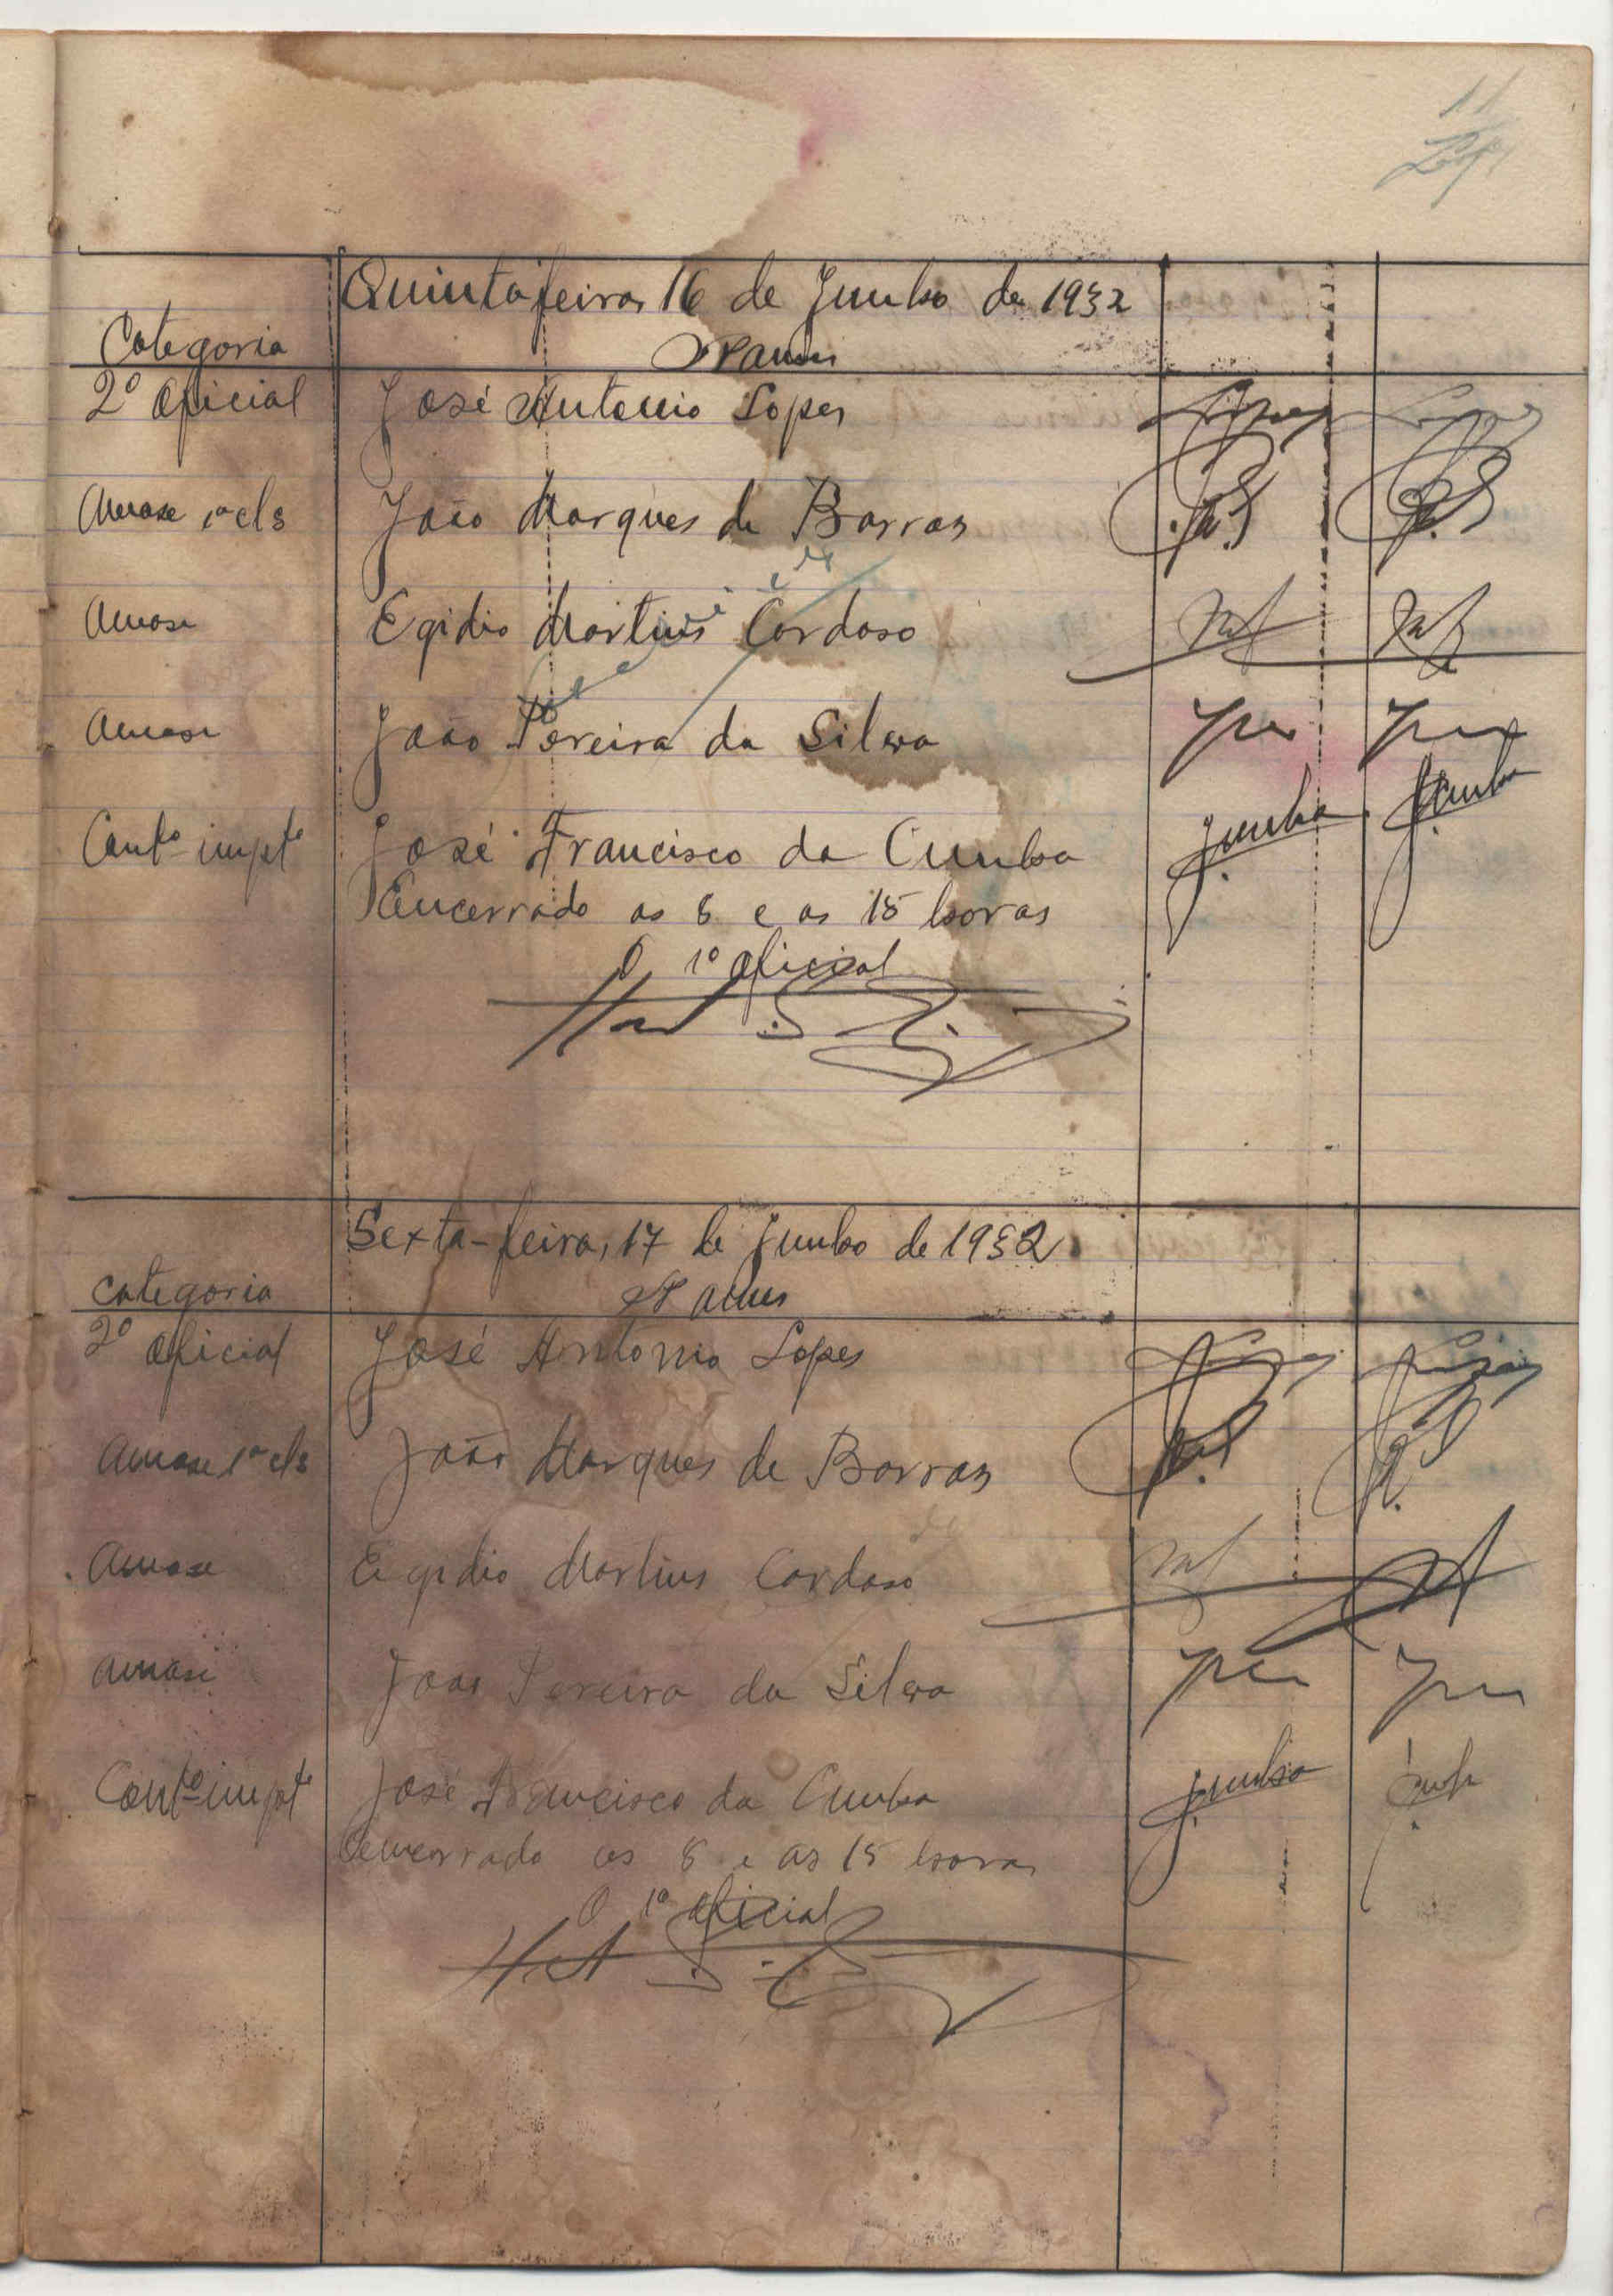 11
Quinta feira, 16 de Junho de 1932
Categoria Nomes
2º Oficial José Antonio Lopes Lopes Lopes
Amase 1ª cls João Marques de Barros
Amase Egidio Martins Cardoso
Amase João Pereira da Silva
Contº impte José Francisco da Cunha JCunha JCunha
Encerrado as 8 e as 15 horas
O 1º Oficial
Sexta-feira, 17 de Junho de 1932
Categoria Nomes
2º Oficial José Antonio Lopes Lopes Lopes
Amase 1ª cls João Marques de Barros
Amase Egidio Martins Cardoso
Amase João Pereira da Silva
Contº impte José Francisco da Cunha JCunha
Encerrado as 8 e as 15 horas
O 1º Oficial